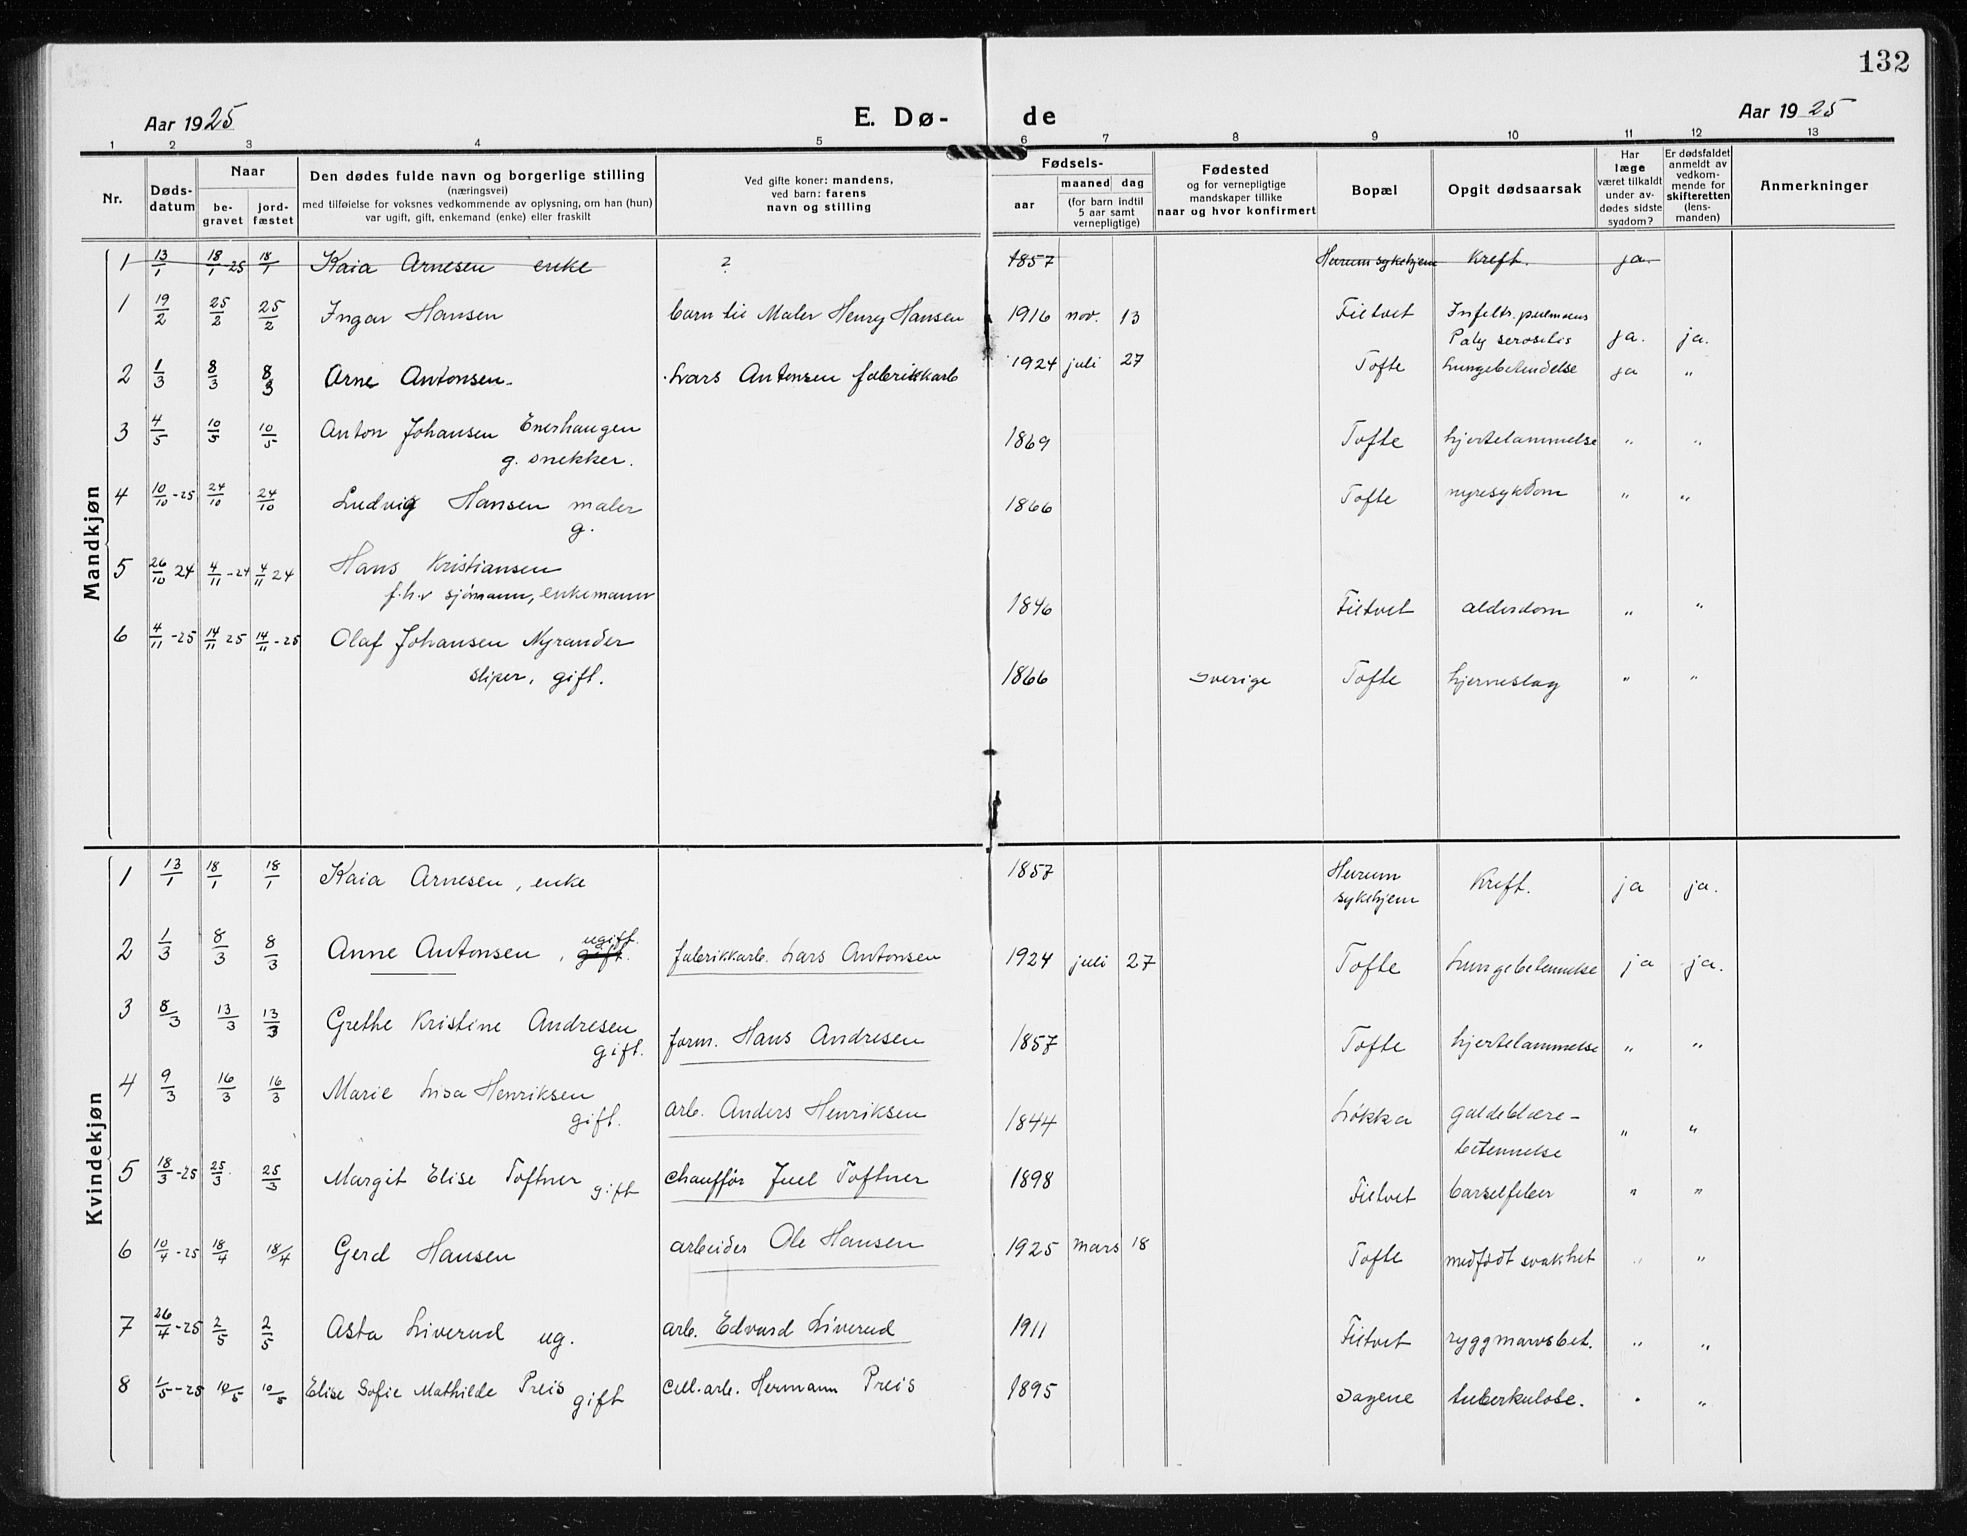 132
Aar 1925 E. Dø- de Aar 1925
1 2 3 4 5 6 7 8 9 10 11 12 13
Nr. | Døds-datum | Naar be-gravet | jord-fæstet | Den dødes fulde navn og borgerlige stilling (næringsvei) med tilføielse for voksnes vedkommende av oplysning, om han (hun) var ugift, gift, enkemand (enke) eller fraskilt | Ved gifte koner: mandens, ved barn: farens navn og stilling | Fødsels- aar | maaned dag (for barn indtil 5 aar samt vernepligtige) | Fødested og for vernepligtige mandskaper tillike naar og hvor konfirmert | Bopæl | Opgit dødsaarsak | Har læge været tilkaldt under av-dødes sidste sygdom? | Er dødsfaldet anmeldt av vedkom-mende for skifteretten (lens-manden) | Anmerkninger
Mandkjøn
1 13/1 18/1-25 18/1 Kaia Arnesen enke ? 1857 Hurum sykehjem Kreft. ja.
1 19/2 25/2 25/2 Ingar Hansen barn til Maler Henry Hansen 1916 nov. 13 Filtvet Infiltr. pulmonus
Poly serositis ja. ja.
2 1/3 8/3 8/3 Arne Antonsen. Lars Antonsen fabrikkarb 1924 juli 27 Tofte Lungebetendelse ja "
3 4/5 10/5 10/5 Anton Johansen Enerhaugen
g. snekker. 1869 Tofte hjertelammelse " "
4 10/10-25 24/10 24/10 Ludvig Hansen maler
g. 1866 Tofte nyresykdom " "
5 26/10 24 4/11-24 4/11 24 Hans Kristiansen
f.h.v sjømann, enkemann 1846 Filtvet alderdom " "
6 4/11-25 14/11 25 14/11-25 Olaf Johansen Nyrander
sliper, gift. 1866 Sverige Tofte hjerneslag " "
Kvindekjøn
1 13/1 18/1 18/1 Kaia Arnesen, enke 1857 Hurum
sykehjem Kreft. ja ja.
2 1/3 8/3 8/3 Anne Antonsen, gift. ugift. fabrikkarb. Lars Antonsen 1924 juli 27 Tofte Lungebetennelse ja ja.
3 8/3 13/3 13/3 Grethe Kristine Andresen
gift. form. Hans Andresen 1857 Tofte hjertelammelse " "
4 9/3 16/3 16/3 Marie Lisa Henriksen
gift. arb. Anders Henriksen 1844 Løkka galdeblære-
betennelse " "
5 18/3-25 25/3 25/3 Margit Elise Toftner gift chauffør Juel Toftner 1898 Filtvet barselfeber " "
6 10/4-25 18/4 18/4 Gerd Hansen arbeider Ole Hansen 1925 mars 18 Tofte medfødt svakhet " "
7 26/4-25 2/5 2/5 Asta Liverud ug. arb. Edvard Liverud 1911 Filtvet ryggmarvsbet. " "
8 1/5-25 10/5 10/5 Elise Sofie Mathilde Preis gift Cell.arb. Hermann Preis 1895 Sagene tuberkulose. " "